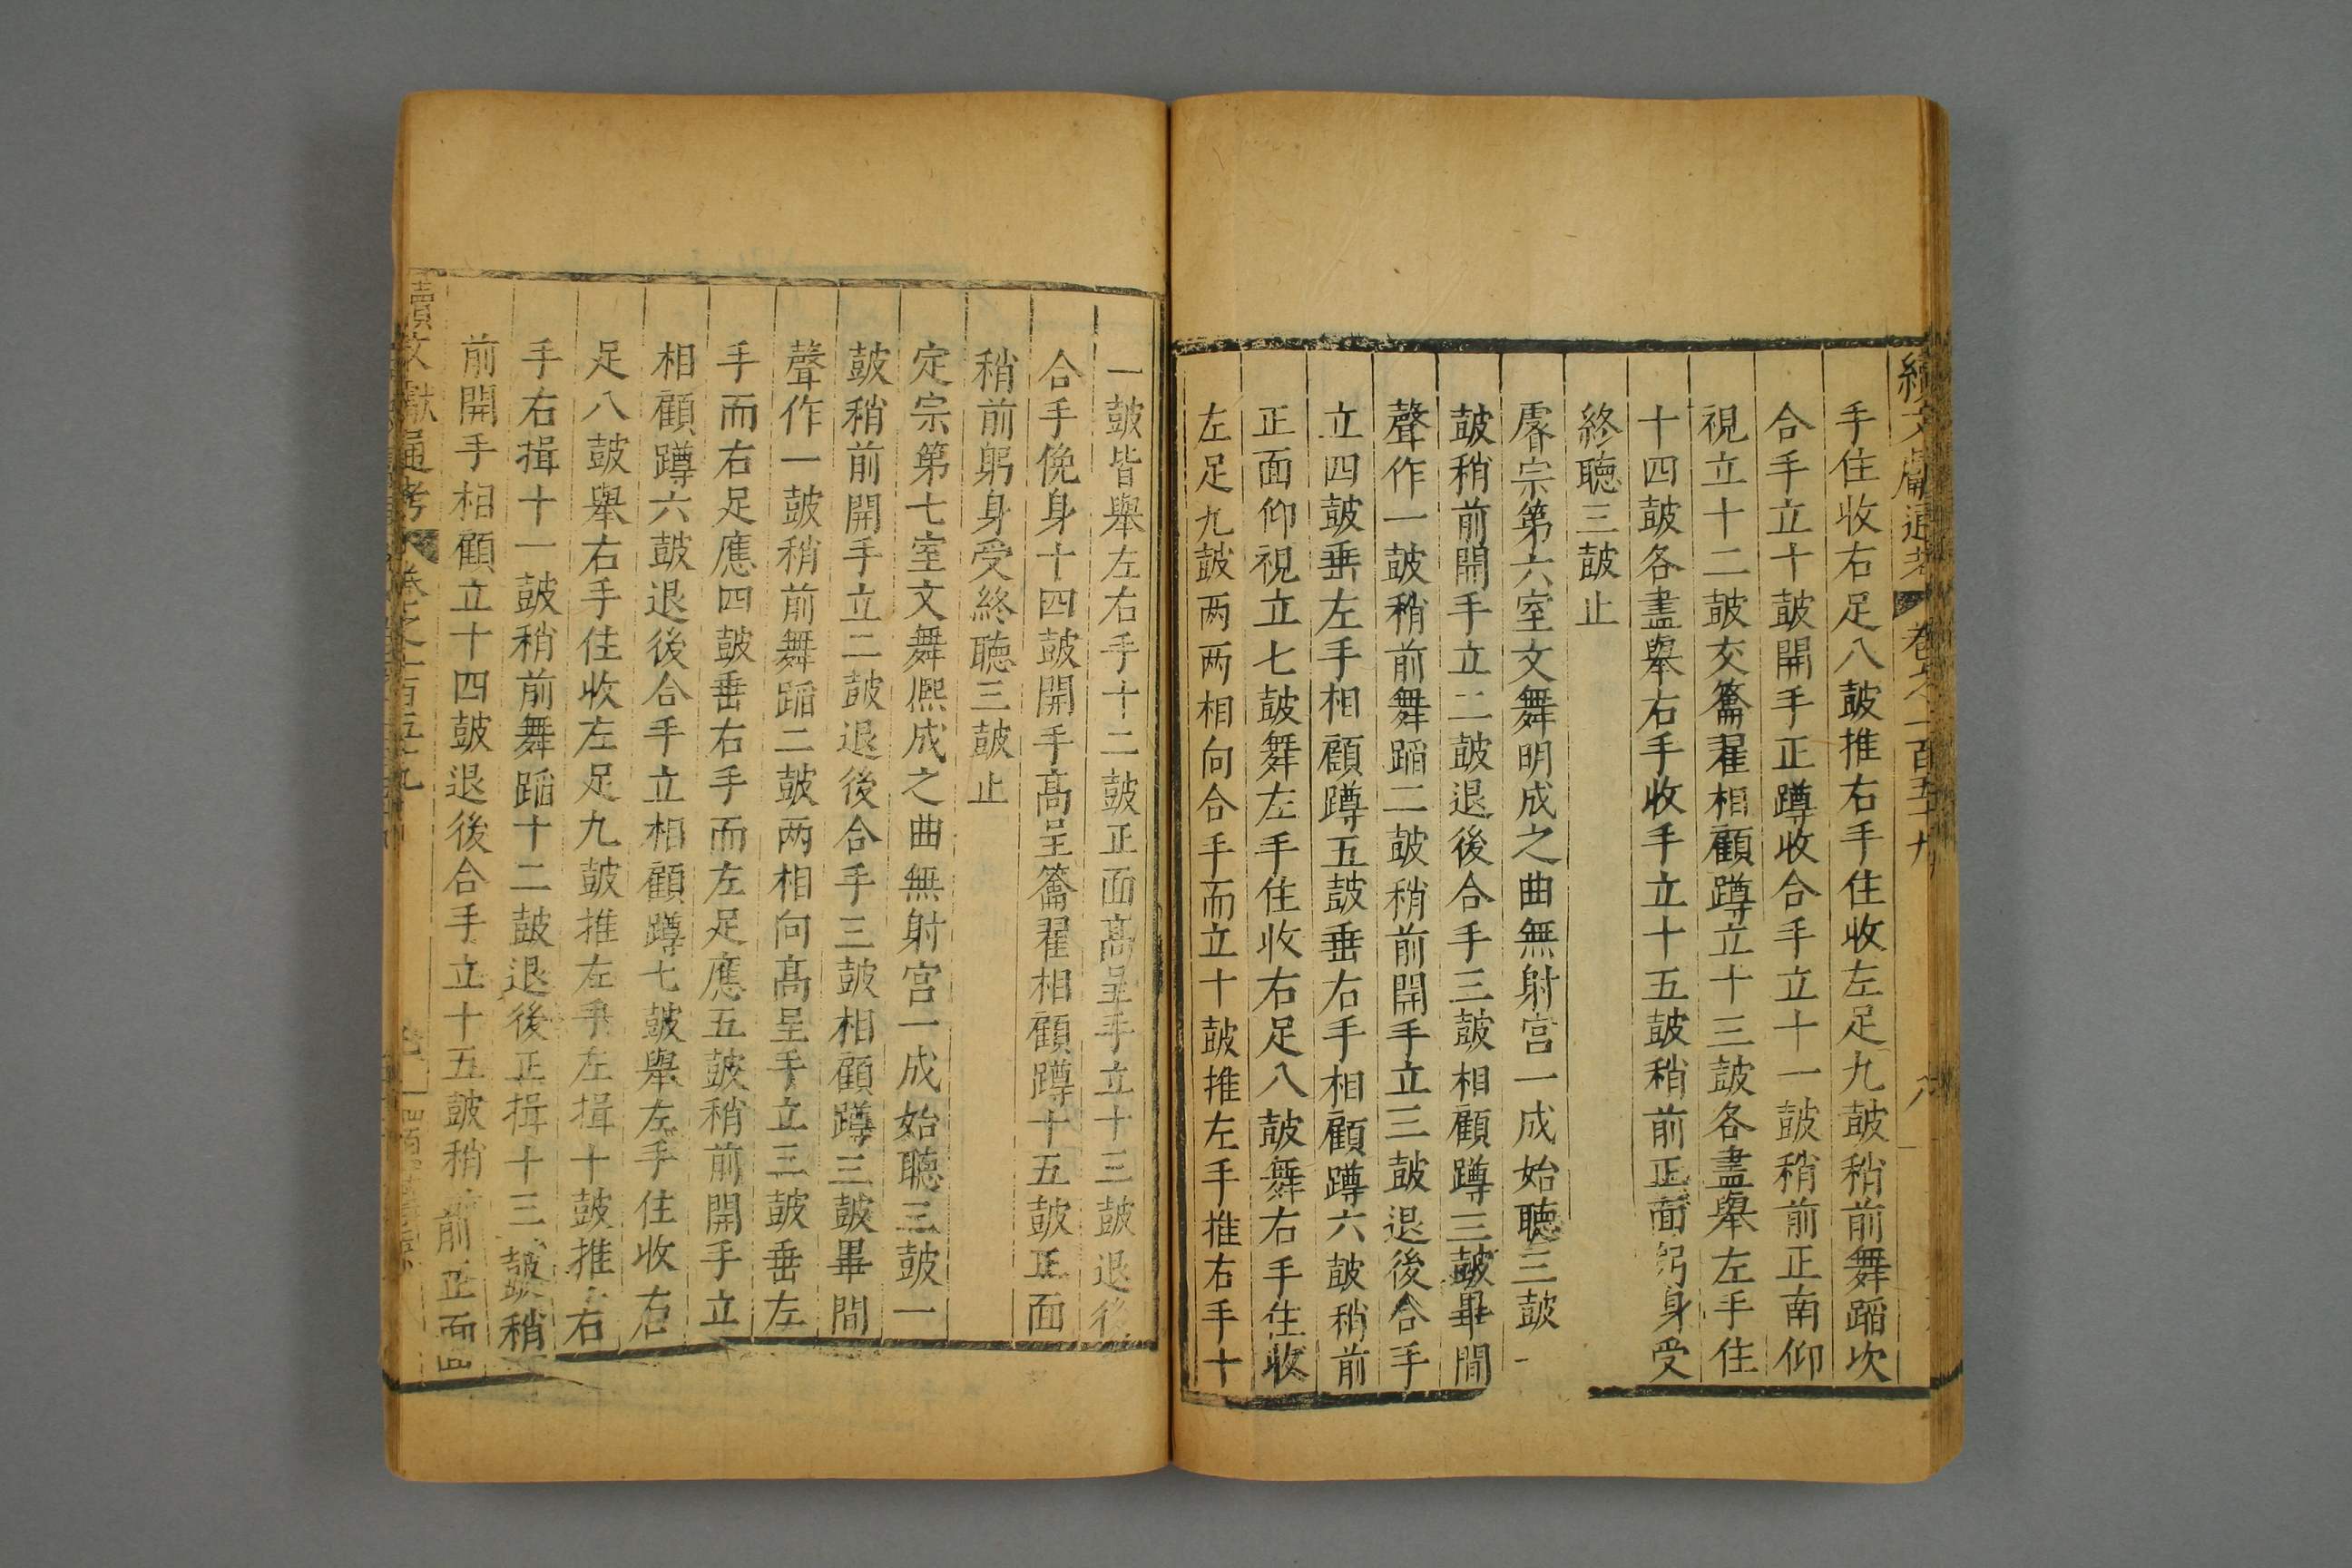 續文獻通考 卷之一百五十九 八
手住收右足八鼓推右手住收左足九鼓稍前舞蹈次
合手立十鼓開手正蹲收合手立十一鼓稍前正南仰
視立十二鼓交籥翟相顧蹲立十三鼓各盡舉左手住
十四鼓各盡舉右手收手立十五鼓稍前正面躬身受
終聽三鼓止
睿宗第六室文舞明成之曲無射宮一成始聽三鼓一
鼓稍前開手立二鼓退後合手三鼓相顧蹲三鼓畢間
聲作一鼓稍前舞蹈二鼓稍前開手立三鼓退後合手
立四鼓垂左手相顧蹲五鼓垂右手相顧蹲六鼓稍前
正面仰視立七鼓舞左手住收右足八鼓舞右手住收
左足九鼓两两相向合手而立十鼓推左手推右手十
一鼓皆舉左右手十二鼓正面高呈手立十三鼓退後
合手俛身十四鼓開手高呈籥翟相顧蹲十五鼓正面
稍前躬身受終聽三鼓止
定宗第七室文舞熙成之曲無射宮一成始聽三鼓一
鼓稍前開手立二鼓退後合手三鼓相顧蹲三鼓畢間
聲作一鼓稍前舞蹈二鼓两相向高呈手立三鼓垂左
手而右足應四鼓垂右手而左足應五鼓稍前開手立
相顧蹲六鼓退後合手立相顧蹲七鼓舉左手住收右
足八鼓舉右手住收左足九鼓推左手左揖十鼓推右
手右揖十一鼓稍前舞蹈十二鼓退後正揖十三鼓稍
前開手相顧立十四鼓退後合手立十五鼓稍前正面
續文獻通考 卷之一百五十九